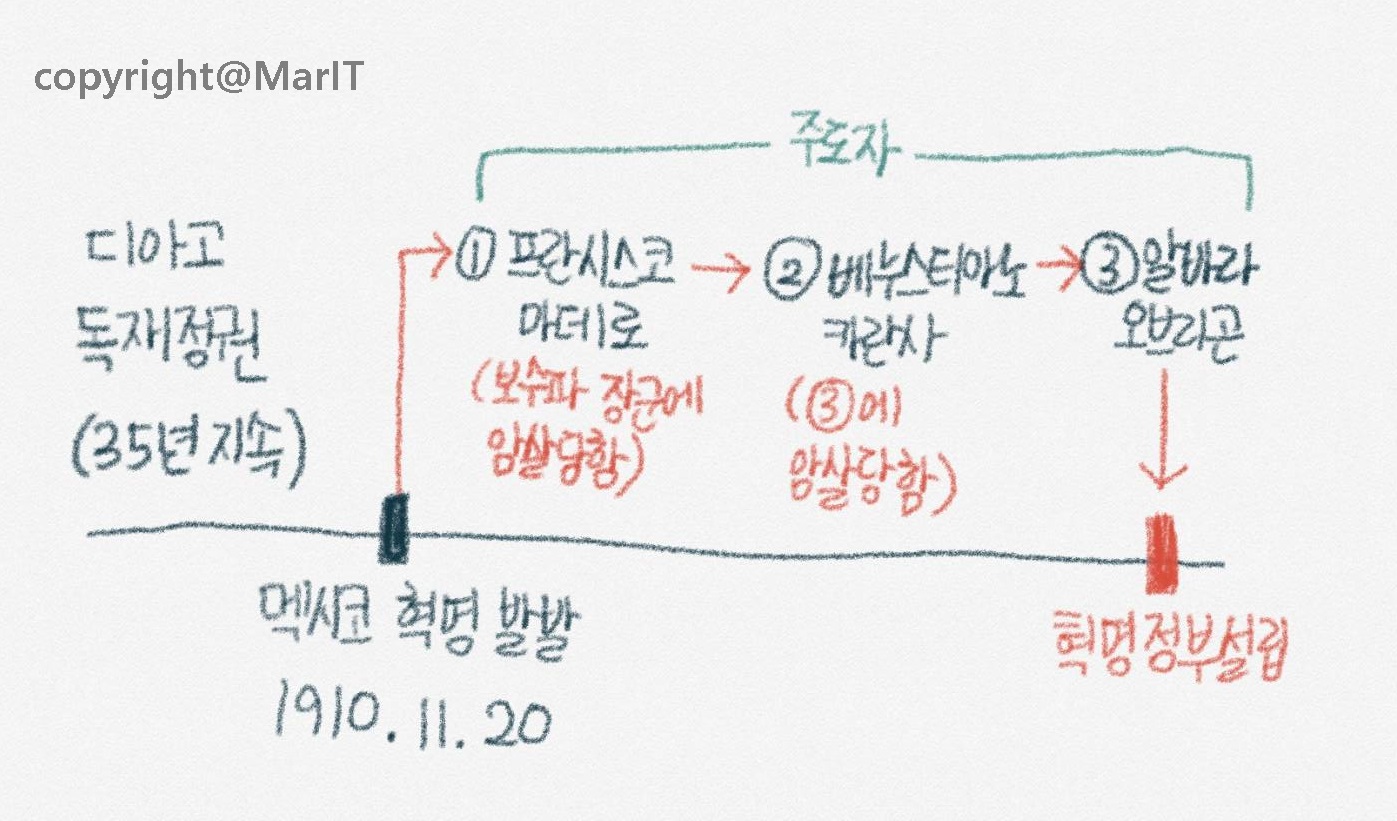 copyright@MarIT
주도자
디아고
독재정권
(35년 지속)
① 프란시스코
마데로
(보수파 장군에
암살당함)
② 베누스티아노
카란사
(③에
암살당함)
③ 알바라
오브라곤
멕시코 혁명 발발
1910.11.20
혁명정부설립